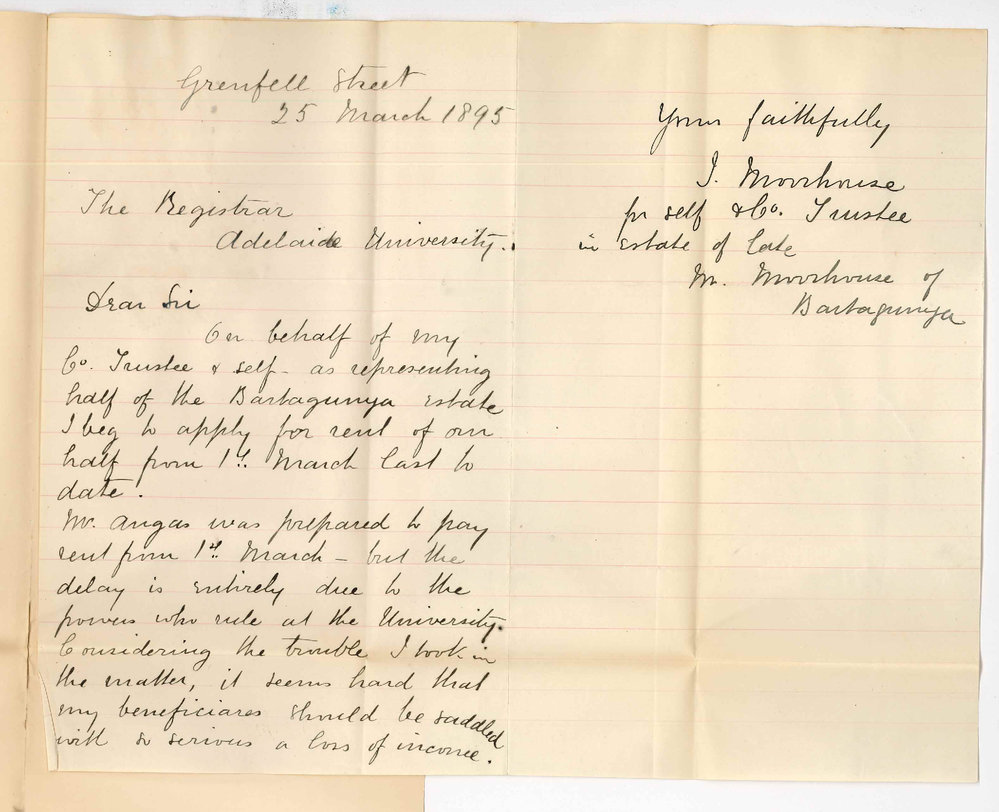 Grenfell Street
25 March 1895
The Registrar
Adelaide University.
Dear Sir
On behalf of my
Co. Trustee & self - as representing
half of the Bartagunya Estate
I beg to apply for rent of our
half from 1st. March last to
date.
Mr. Angas was prepared to pay
rent from 1st March - but the
delay is entirely due to the
powers who rule at the University.
Considering the trouble I took in
the matter, it seems hard that
my beneficiares should be saddled
with so serious a loss of income.
Yours faithfully
J. Moorhouse
for self & Co. Trustee
in Estate of late
M. Moorhouse of
Bartagunya